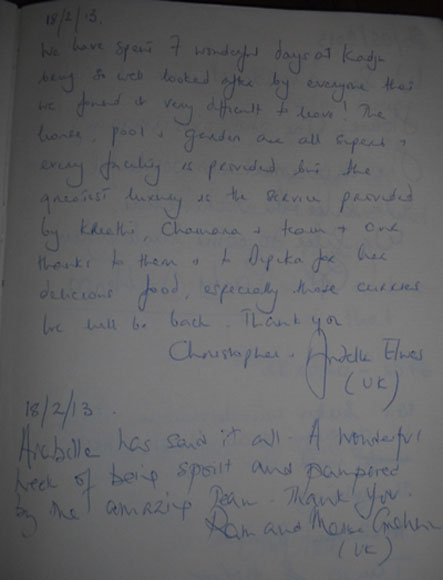 18/2/13.
We have spent 7 wonderful days at Kadju
being so well looked after by everyone that
we found it very difficult to leave! The
house, pool & garden are all superb &
every facility is provided but the
greatest luxury is the service provided
by Kreathi, Chamara & team & our
thanks to them & to Dipika for her
delicious food, especially those curries
We will be back. Thank you
Christopher &
(UK)
18/2/13.
Arabella has said it all. A wonderful
week of being spoilt and pampered
by the amazing Team. Thank You.
and
(UK)